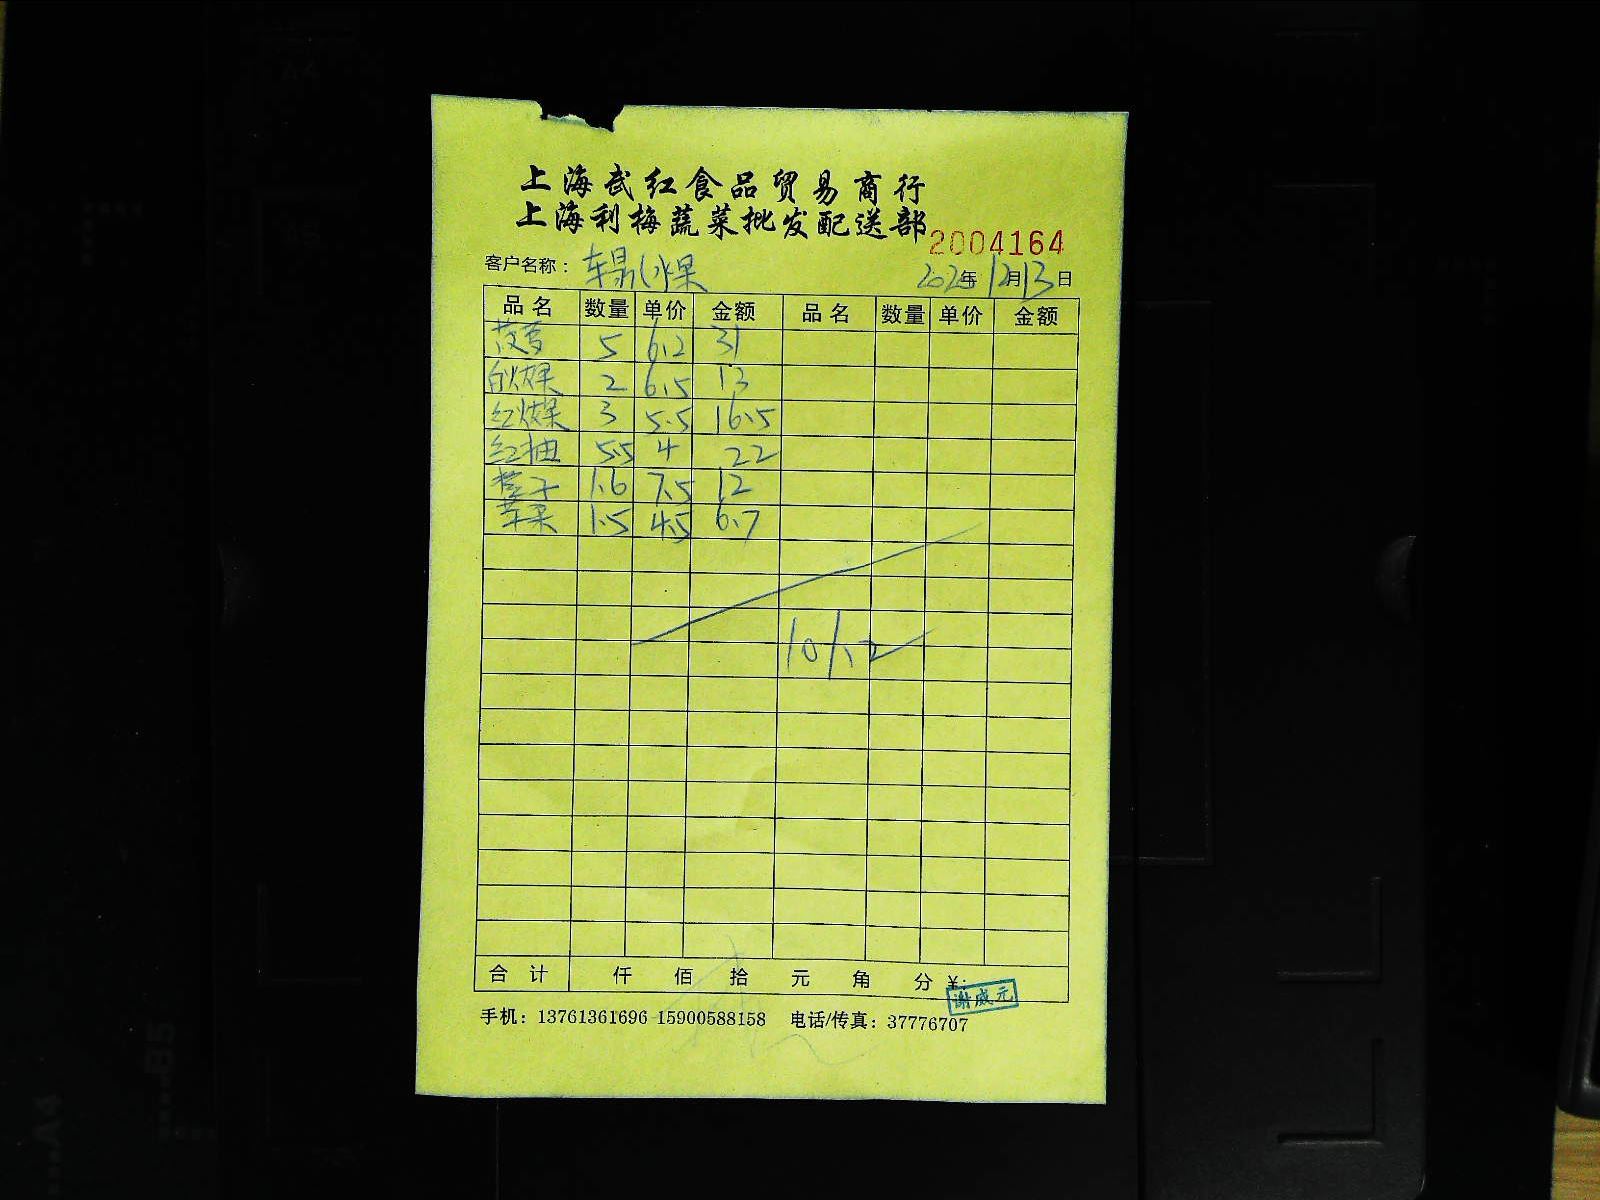 上海武红食品贸易商行
上海利梅蔬菜批发配送部
2004164
客户名称： 水果 年12月13日
品名 数量 单价 金额 品名 数量 单价 金额
菠萝 5 6.2 31
白火龙果 2 6.5 13
红火龙果 3 5.5 16.5
红柚 5.5 4 22
橙子 1.6 7.5 12
苹果 1.5 4.5 6.7
101.2
合计 仟 佰 拾 元 角 分 ¥:
谢威元
手机：13761361696 15900588158 电话/传真：37776707